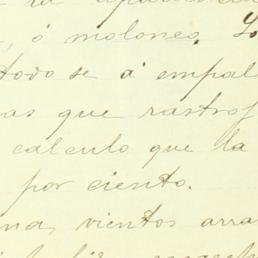 , ó molones. Lo
todo se á empal
as que rastroj
calculo que la
por ciento.
na, vientos arra